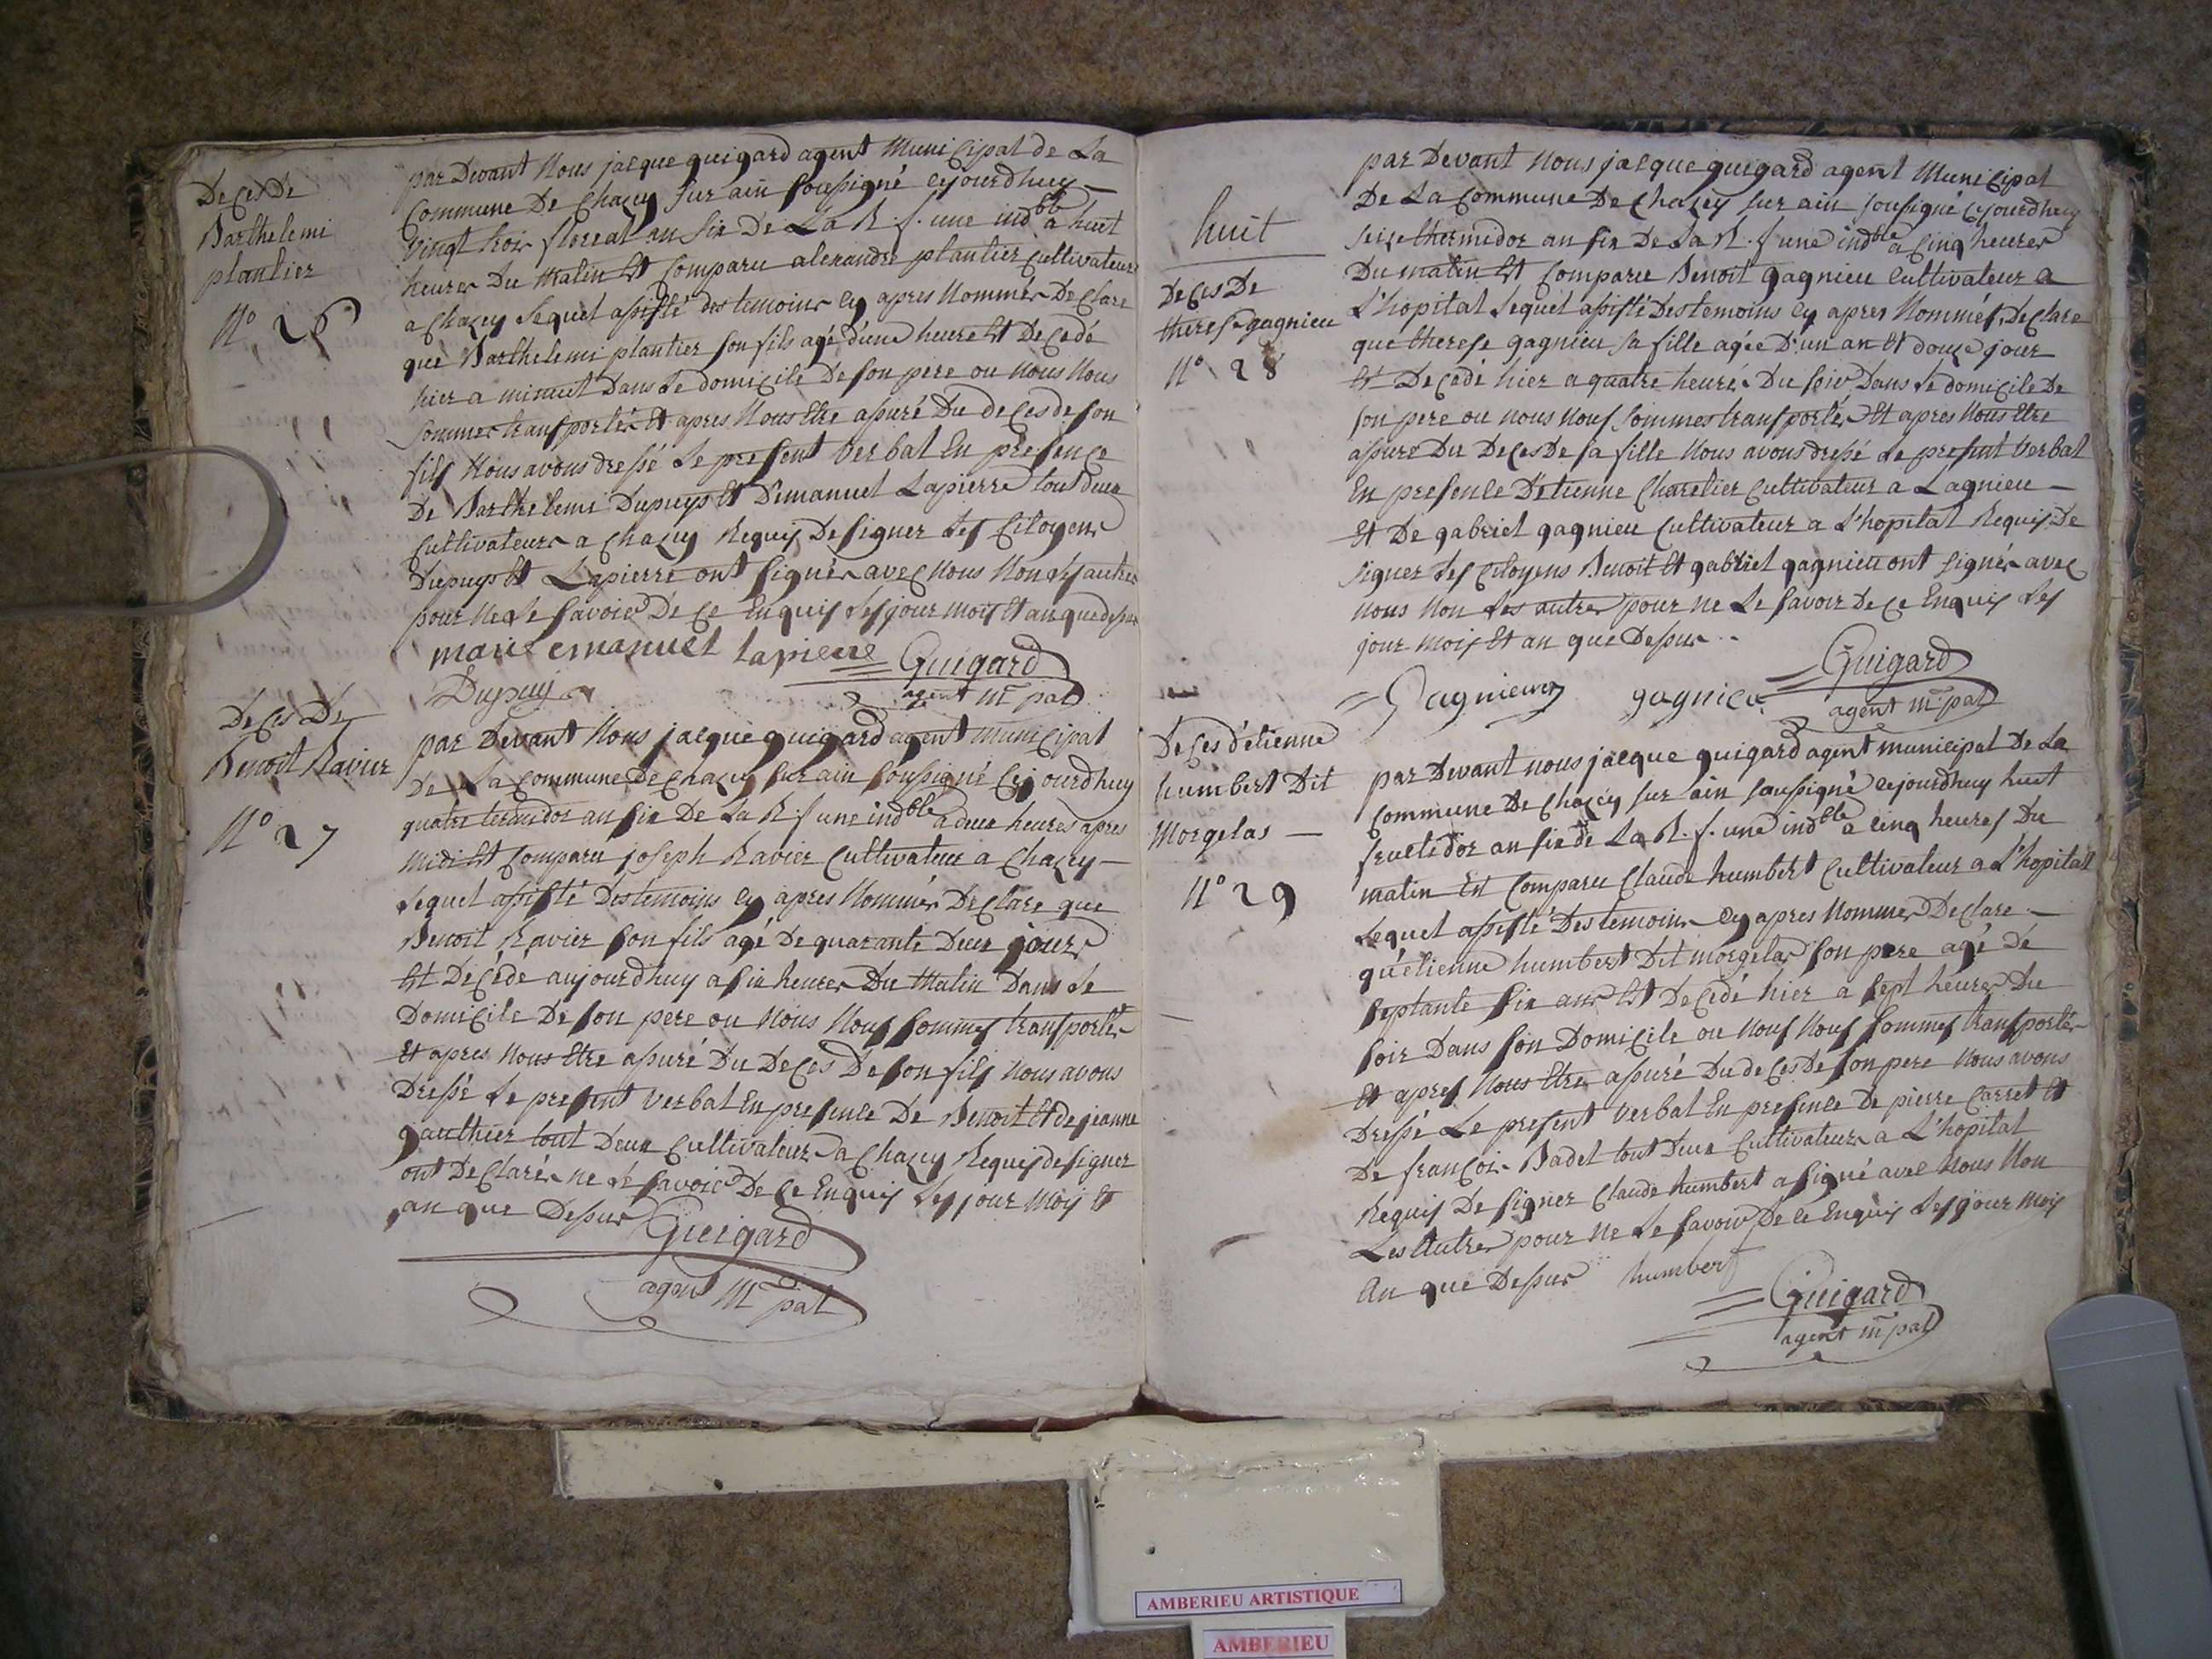 De Ces De
Barthelemi
plantier
N° 26
par Devant Nous jacque guigard agent Municipal de La
Commune De Chazey Sur ain soussigné cejourdhuy
vingt trois floreal an six De La R. f. une indble a huit
heures Du Matin Est Comparu alexandre plantier Cultivateur
a Chazey Lequel assisté des temoins cy apres Nommés Declare
que Barthelemi plantier son fils agé d'une heure Est Decedé
hier a minuit Dans Le domicile De son pere ou nous Nous
sommes transportés Et apres Nous Etre assuré Du deces de son
fils Nous avons dressé Le present Verbal En presence
De Barthelemi Dupuys Et D'emanuel Lapierre tout deux
Cultivateurs a Chazey Requis De signer Les Citoyens
Dupuys Et Lapierre ont signés avec Nous Non Les autres
pour Ne Le savoir De Ce Enquis Les jour mois Et an que dessus
marie emanuel lapierre Guigard
Dupuy agent m pal
De Ces De
Benoit Ravier
N° 27
par Devant Nous jacque guigard agent municipal
De La Commune De Chazey Sur ain soussigné Cejourdhuy
quatre termidor an six De La R. f une indble a deux heures apres
midi Est Comparu joseph Ravier Cultivateur a Chazey
Lequel assisté Des temoins cy apres Nommés Declare que
Benoit Ravier son fils agé De quarante Deux jours
Est Decédé aujourdhuy a six heures Du Matin Dans Le
Domicile De son pere ou Nous Nous sommes transportés
Et apres Nous Etre assuré Du Deces De son fils Nous avons
Dressé Le present Verbal En presence De Benoit Et de jeanne
gauthier tout Deux Cultivateurs a Chazey Requis de signer
ont Declarés ne Le savoir De Ce Enquis Les jour Mois Et
an que Dessus Guigard
agent m pal
huit
De Ces De
therese gagnieu
N° 28
par Devant Nous jacque guigard agent Municipal
De La Commune De Chazey sur ain soussigné cejourdhuy
seize thermidor an six De La R. f une indble a Cinq heures
Du matin Est Comparu Benoit gagnieu Cultivateur a
L'hopital Lequel assisté Des temoins cy apres Nommés, Declare
que therese gagnieu sa fille agée D'un an Et douze jour
Est Decedé hier a quatre heures Du soir Dans Le domicile De
son pere ou nous nous sommes transportés Et apres Nous Etre
assuré Du Deces De sa fille Nous avons dressé Le present Verbal
En presence D'etienne Charelier Cultivateur a Lagnieu
Et De gabriel gagnieu Cultivateur a L'hopital Requis De
signer Les Citoyens Benoit Et gabriel gagnieu ont signés avec
nous Non Les autres pour ne Le savoir De Ce Enquis Les
jour mois Et an que Dessus
Gagnieux gagnieu Guigard
agent m pal
De Ces d'etienne
humbert Dit
Morgelas
N° 29
par Devant nous jacque guigard agent municipal De La
Commune De Chazey sur ain soussigné cejourdhuy huit
fructidor an six de La R. f. une indble a cinq heures Du
matin Est Comparu Claude humbert Cultivateur a L'hopital
Lequel assisté Des temoins cy apres Nommés Declare
qu'etienne humbert Dit morgelas son pere agé de
septante six ans Est Decedé hier a sept heures Du
soir Dans son Domicile ou Nous Nous sommes transportés
Et apres Nous Etre assuré Du deces De son pere Nous avons
Dressé Le present Verbal En presence De pierre Carret Et
De françois Badet tout Deux Cultivateurs a L'hopital
Requis De signer Claude humbert a signé avec Nous Non
Les Autres pour Ne Le savoir De Ce Enquis Les jour mois
An que Dessus humbert
Guigard
agent m pal
AMBERIEU ARTISTIQUE
AMBERIEU